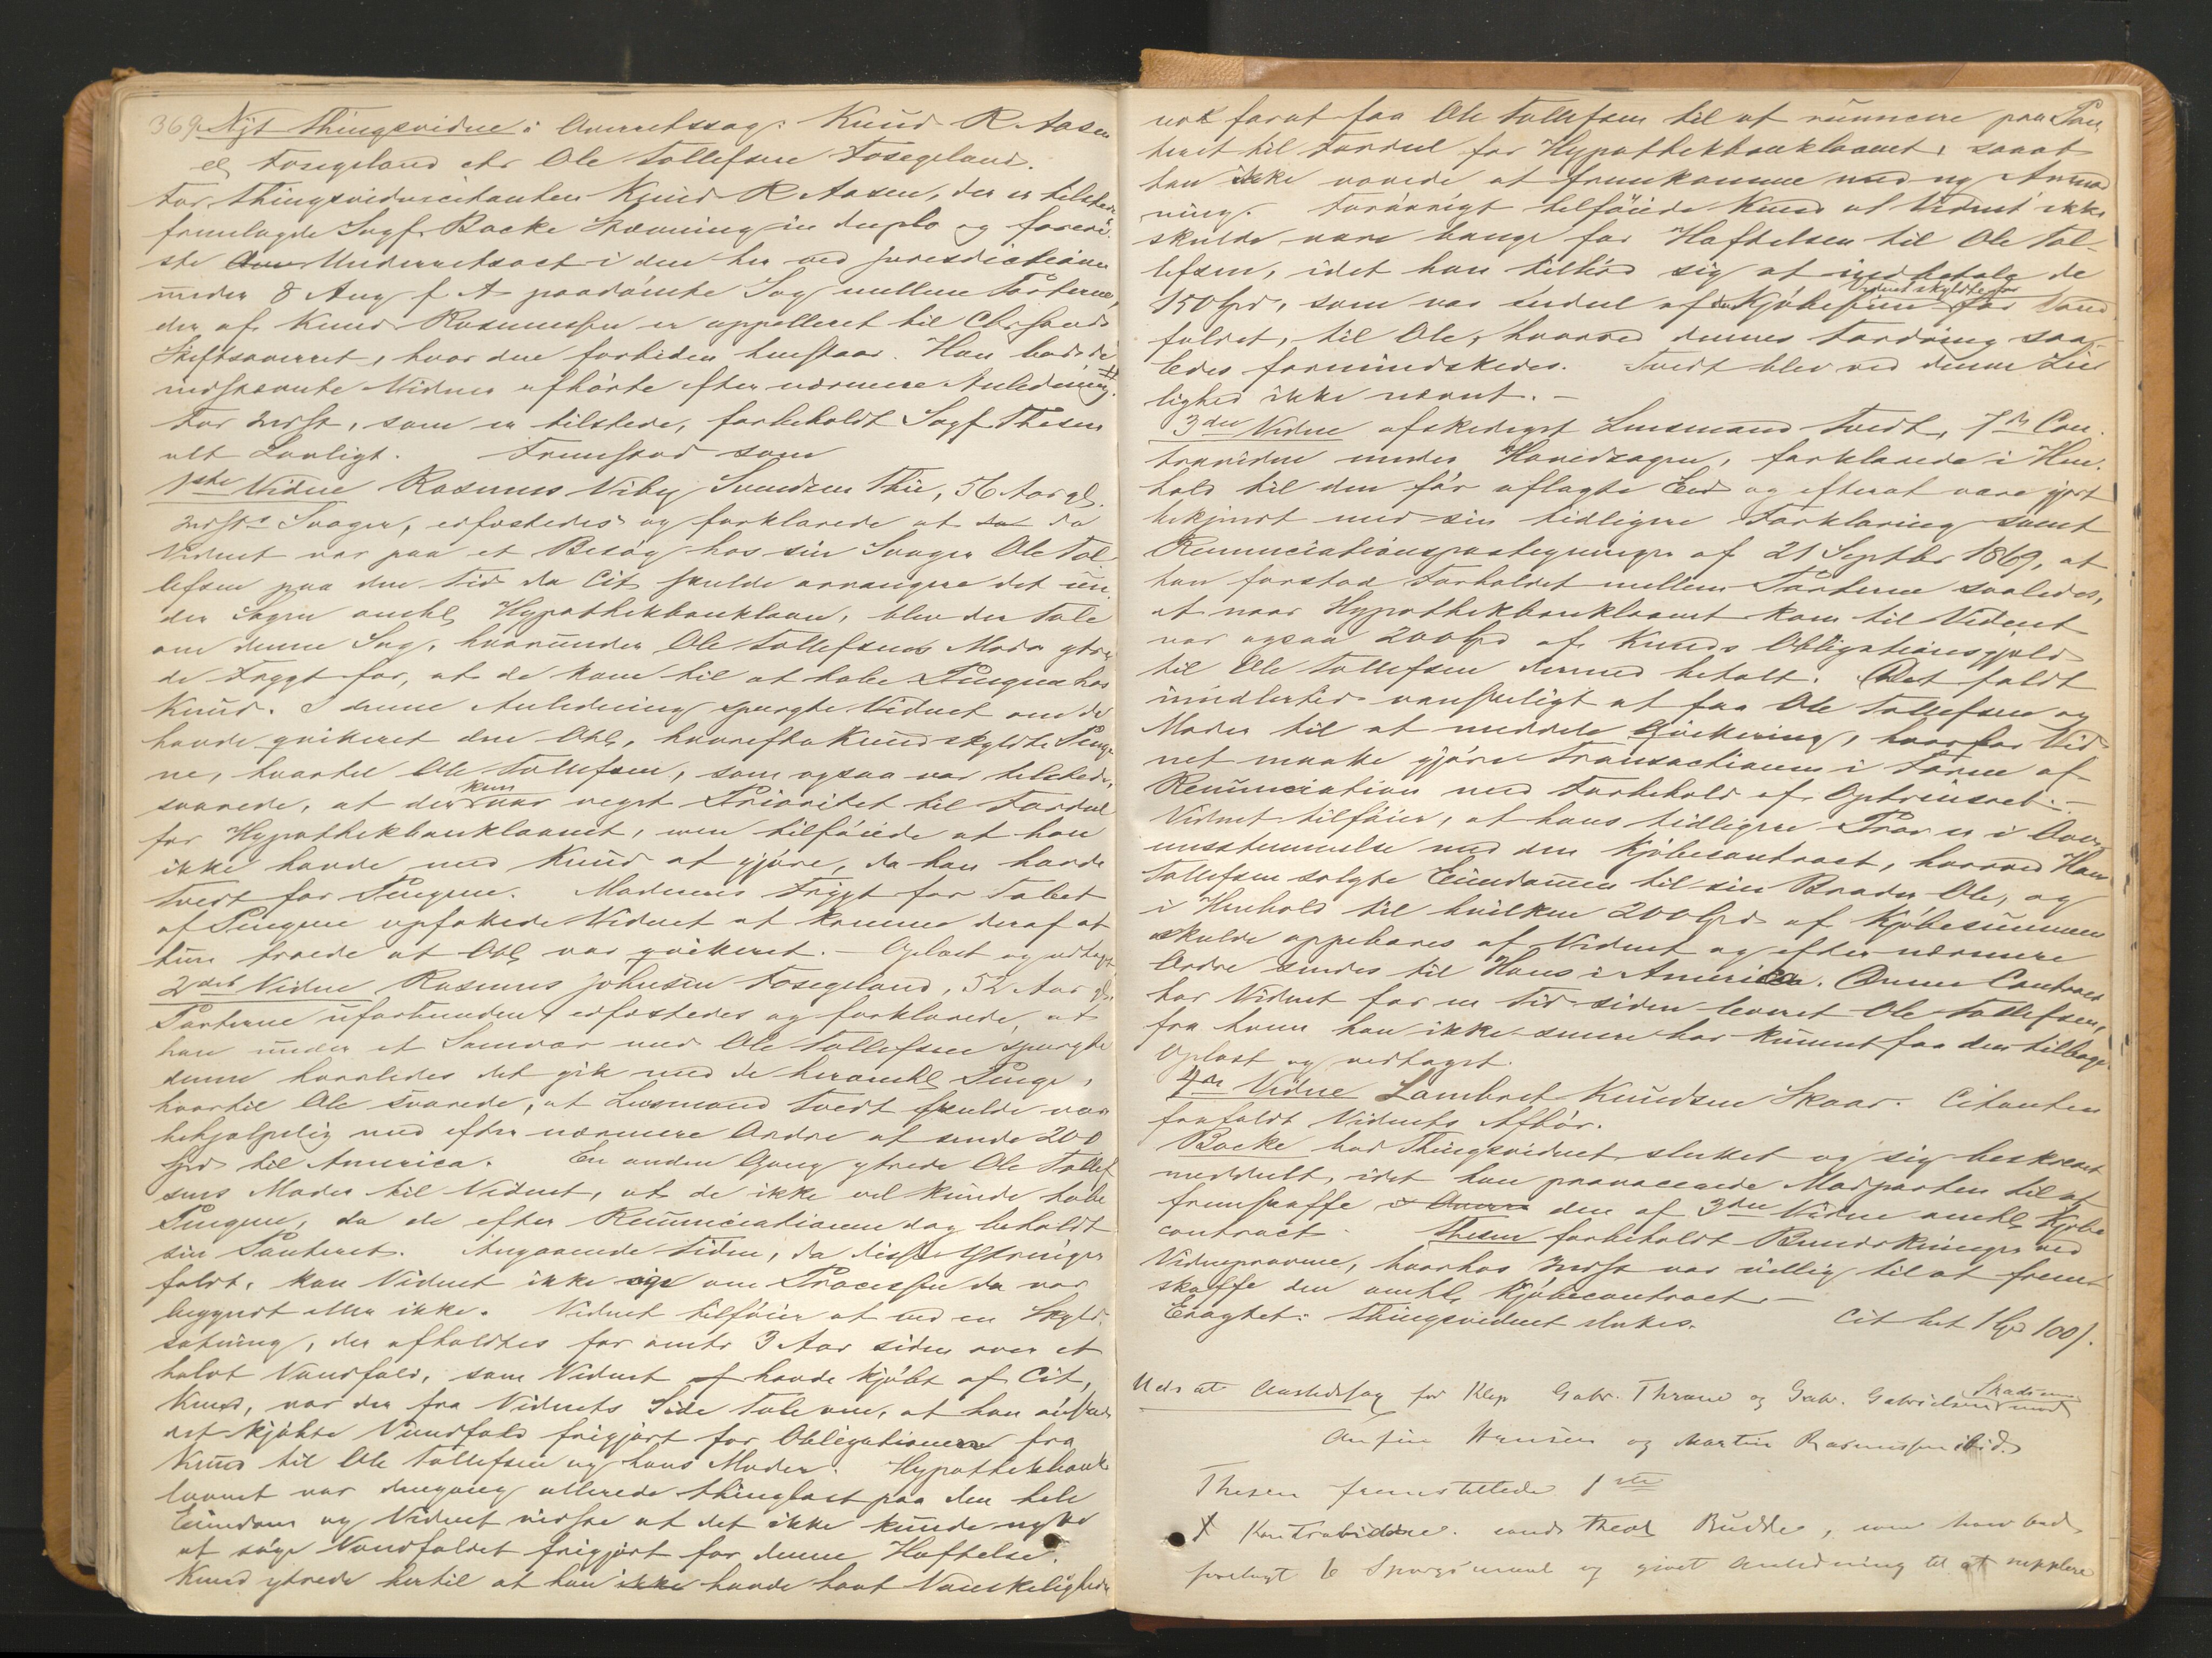 369. Nyt Thingsvidne i Overretssag: Knud R. Aasen
el Fosegeland ctr Ole Tollefsen Fosegeland.
For Thingsvidnecitanten Knud R Aasen, der er tilstede
fremlagde Sagf. Backe Stævning in duplo og forevi-
ste Underretsact i den her ved Jurisdictionen
under 8 Aug f. A. paadømte Sag mellem Parterne,
der af Knud Rasmussen er appelleret til Chrsands
Stiftsoverret, hvor den fortiden henstaar. Han bad de
indstævnte Vidner afhørte efter nærmere Anledning. #
For Indst, som er tilstede, forbeholdt Sagf. Thesen
alt Lovligt. Fremstod som
1ste Vidne Rasmus Viby Svendsen Thu, 56 Aar gl.
Indsts Svager, edfæstedes og forklarede at da
Vidnet var paa et Besøg hos sin Svager Ole Tol-
lefsen paa den Tid da Cit skulde arrangere det un-
der Sagen omhl. Hypothekbanklaan, blev der Tale
om denne Sag, hvorunder Ole Tollefsens Moder ytre-
de Frygt for, at de kom til at tabe Pengene hos
Knud. I denne Anledning spurgte Vidnet om de
havde qvitteret den Obl., hvorefter Knud skyldte Penge-
ne, hvortil Ole Tollefsen, som ogsaa var tilstede,
svarede, at der kun var veget Prioritet til Fordel
for Hypothekbanklaanet, men tilføiede at han
ikke havde med Knud at gjøre, da han havde
Tvedt for Pengene. Moderens Frygt for Tabet
af Pengene opfattede Vidnet at komme deraf at
hun troede at Obl. var qvitteret. – Oplæst og vedtaget
2det Vidne Rasmus Johnsen Fosegeland, 52 Aar gl.
Parterne uforbunden, edfæstedes og forklarede, at
han under et Samvær med Ole Tollefsen spurgte
denne hvorledes det gik med de heromhl. Penge,
hvortil Ole svarede, at Lensmand Tvedt skulde være
behjælpelig med efter nærmere Ordre at sende 200
Spd til America. En anden Gang ytrede Ole Tollef-
sens Moder til Vidnet, at de ikke vel kunde tabe
Pengene, da de efter Renunciationen dog beholdt
sin Panteret. Angaaende Tiden, da disse Ytringer
faldt, kan Vidnet ikke sige om Processen da var
begyndt eller ikke. Vidnet tilføier at ved en Skyld-
sætning, der afholdtes for omtr 3 Aar siden over et
halvt Vandfald, som Vidnet havde kjøbt af Cit,
Knud, var der fra Vidnets Side Tale om, at han ønskede
det kjøbte Vandfald frigjort for Obligationen fra
Knud til Ole Tollefsen og hans Moder. Hypothekbank-
laanet var dengang allerede thinglæst paa den hele
Eiendom og Vidnet vidste at det ikke kunde nytte
at søge Vandfaldet frigjort for denne Heftelse.
Knud ytrede hertil at han havde havt Vanskeligheder
nok forat faa Ole Tollefsen til at renuncere paa Pan-
teret til Fordel for Hypothekbanklaanet, saaat
han ikke vovede at fremkomme med ny Anmod-
ning. Forøvrigt tilføiede Knud at Vidnet ikke
skulde være bange for Heftelsen til Ole Tol-
lefsen, idet han tilbød sig at indbetale de
150 Spd, som var endel af den Kjøbesum Vidnet skyldte for Vand-
faldet, til Ole, hvorved dennes Fordring saa-
ledes formindskedes. Tvedt blev ved denne Lei-
lighed ikke nævnt. –
3die Vidne afskediget Lensmand Tvedt, 7de Con-
travidne under Hovedsagen, forklarede i Hen-
hold til den før aflagte Eed og efterat være gjort
bekjendt med sin tidligere Forklaring samt
Renunciationspaategningen af 21 Septbr 1869, at
han forstod Forholdet mellem Parterne saaledes,
at naar Hypothekbanklaanet kom til Vidnet
var ogsaa 200 Spd af Knuds Obligationsgjeld
til Ole Tollefsen dermed betalt. Det faldt
imidlertid vanskeligt at faa Ole Tollefsen og
Moder til at meddele Qvittering, hvorfor Vid-
net maatte gjøre Transactionen i Form af
Renunciation med Forbehold af Optrinsret. –
Vidnet tilføier, at hans tidligere Prov er i Over-
ensstemmelse med den Kjøbecontract, hvorved Hans
Tollefsen solgte Eiendommen til sin Broder Ole, og
i Henhold til hvilken 200 Spd af Kjøbesummen
skulde oppebæres af Vidnet og efter nærmere
Ordre sendes til Hans i America. Denne Contract
har Vidnet for en Tid siden leveret Ole Tollefsen,
fra hvem han ikke senere har kunnet faa den tilbage.
Oplæst og vedtaget.
4de Vidne Lambert Knudsen Skaar. Citanten
frafaldt Vidnets Afhør.
Backe bad Thingsvidnet sluttet og sig beskrevet
meddelt, idet han provocerede Modparten til at
fremskaffe den af 3die Vidne omhl. Kjøbe-
contract. Thesen forbeholdt Bemærkninger ved
Vidneprovene, hvorhos Indst var villig til at frem-
skaffe den omhl. Kjøbecontract. –
Eragtet: Thingsvidnet sluttes. Cit bet 1 Spd 100 s.
Uds at Aastedssag for Klep Gabr. Thrane og Gabr. Gabrielsen Skadsem mod
Anfin Hansen og Martin Rasmussen ibid.
Thesen fremstillede 1ste
X Kontravidne. cand. theol Budde, som han bad
forelagt 6 Spørgsmaal og givet Anledning til at supplere